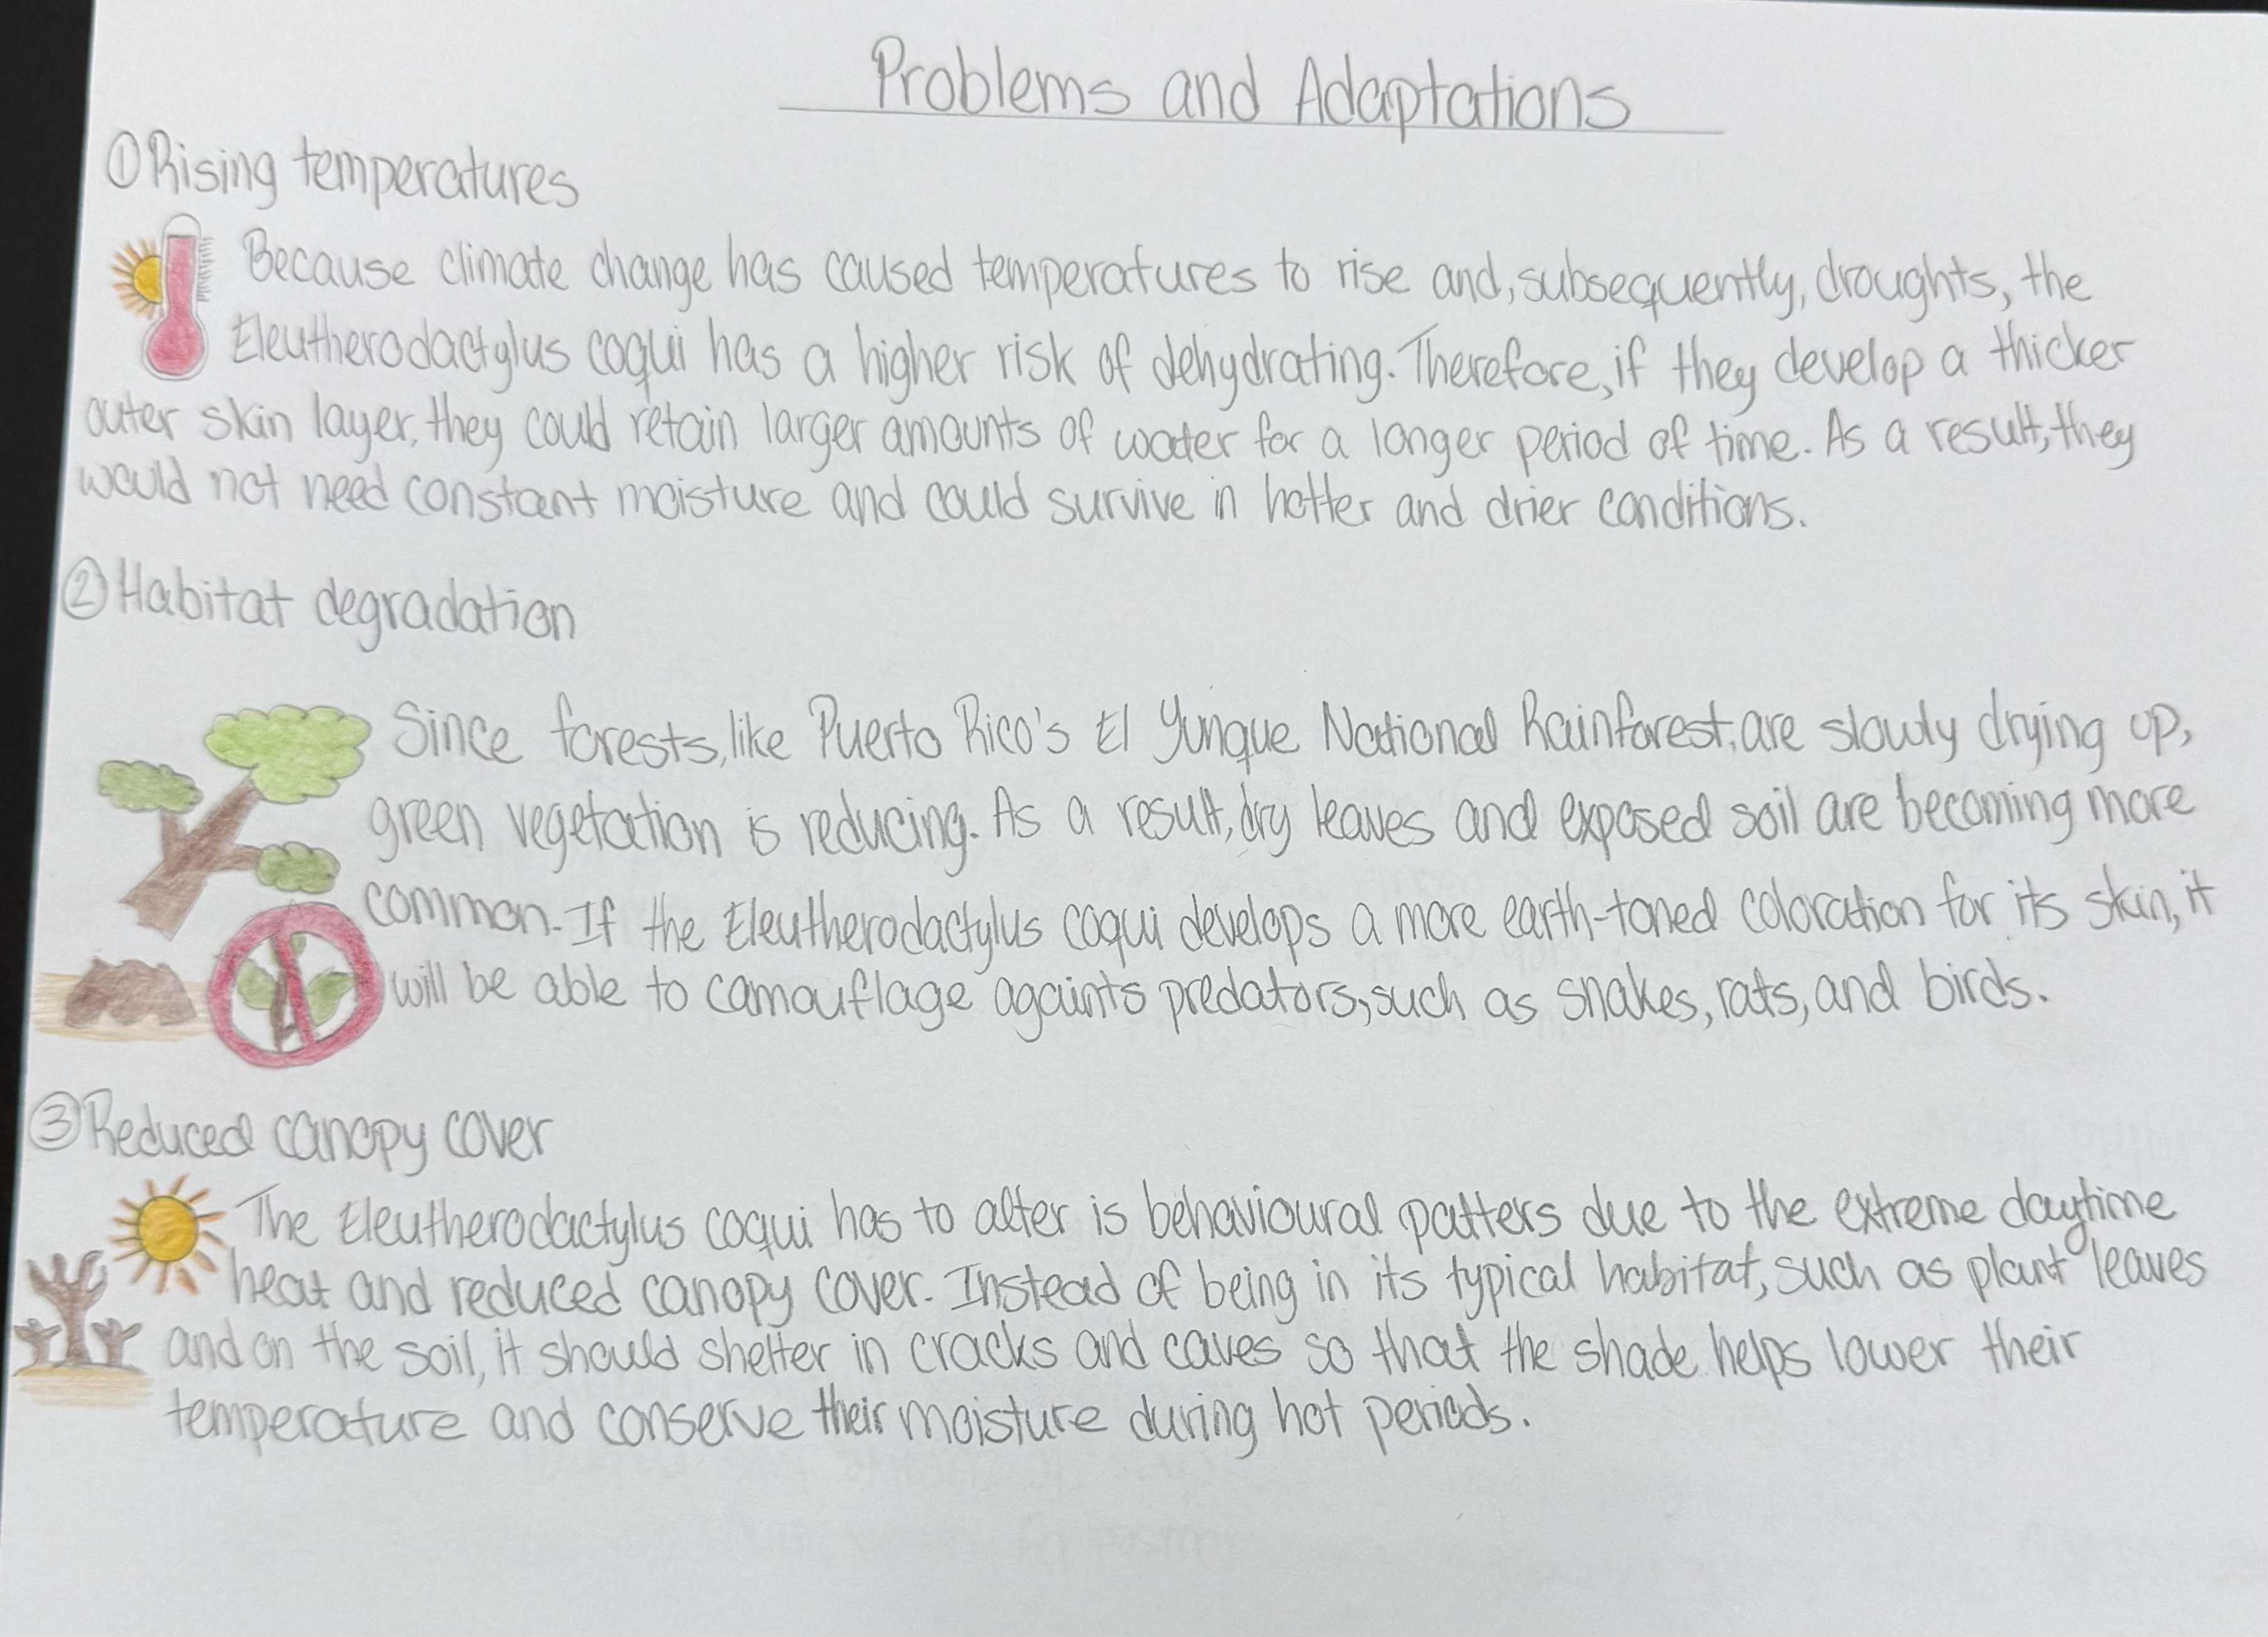 Problems and Adaptations
① Rising temperatures
Because climate change has caused temperatures to rise and, subsequently, droughts, the
Eleutherodactylus coqui has a higher risk of dehydrating. Therefore, if they develop a thicker
outer skin layer, they could retain larger amounts of water for a longer period of time. As a result, they
would not need constant moisture and could survive in hotter and drier conditions.
② Habitat degradation
Since forests, like Puerto Rico's El Yunque National Rainforest, are slowly drying up,
green vegetation is reducing. As a result, dry leaves and exposed soil are becoming more
common. If the Eleutherodactylus coqui develops a more earth-toned coloration for its skin, it
will be able to camouflage againts predators, such as snakes, rats, and birds.
③ Reduced canopy cover
The Eleutherodactylus coqui has to alter is behavioural patters due to the extreme daytime
heat and reduced canopy cover. Instead of being in its typical habitat, such as plant leaves
and on the soil, it should shelter in cracks and caves so that the shade helps lower their
temperature and conserve their moisture during hot periods.